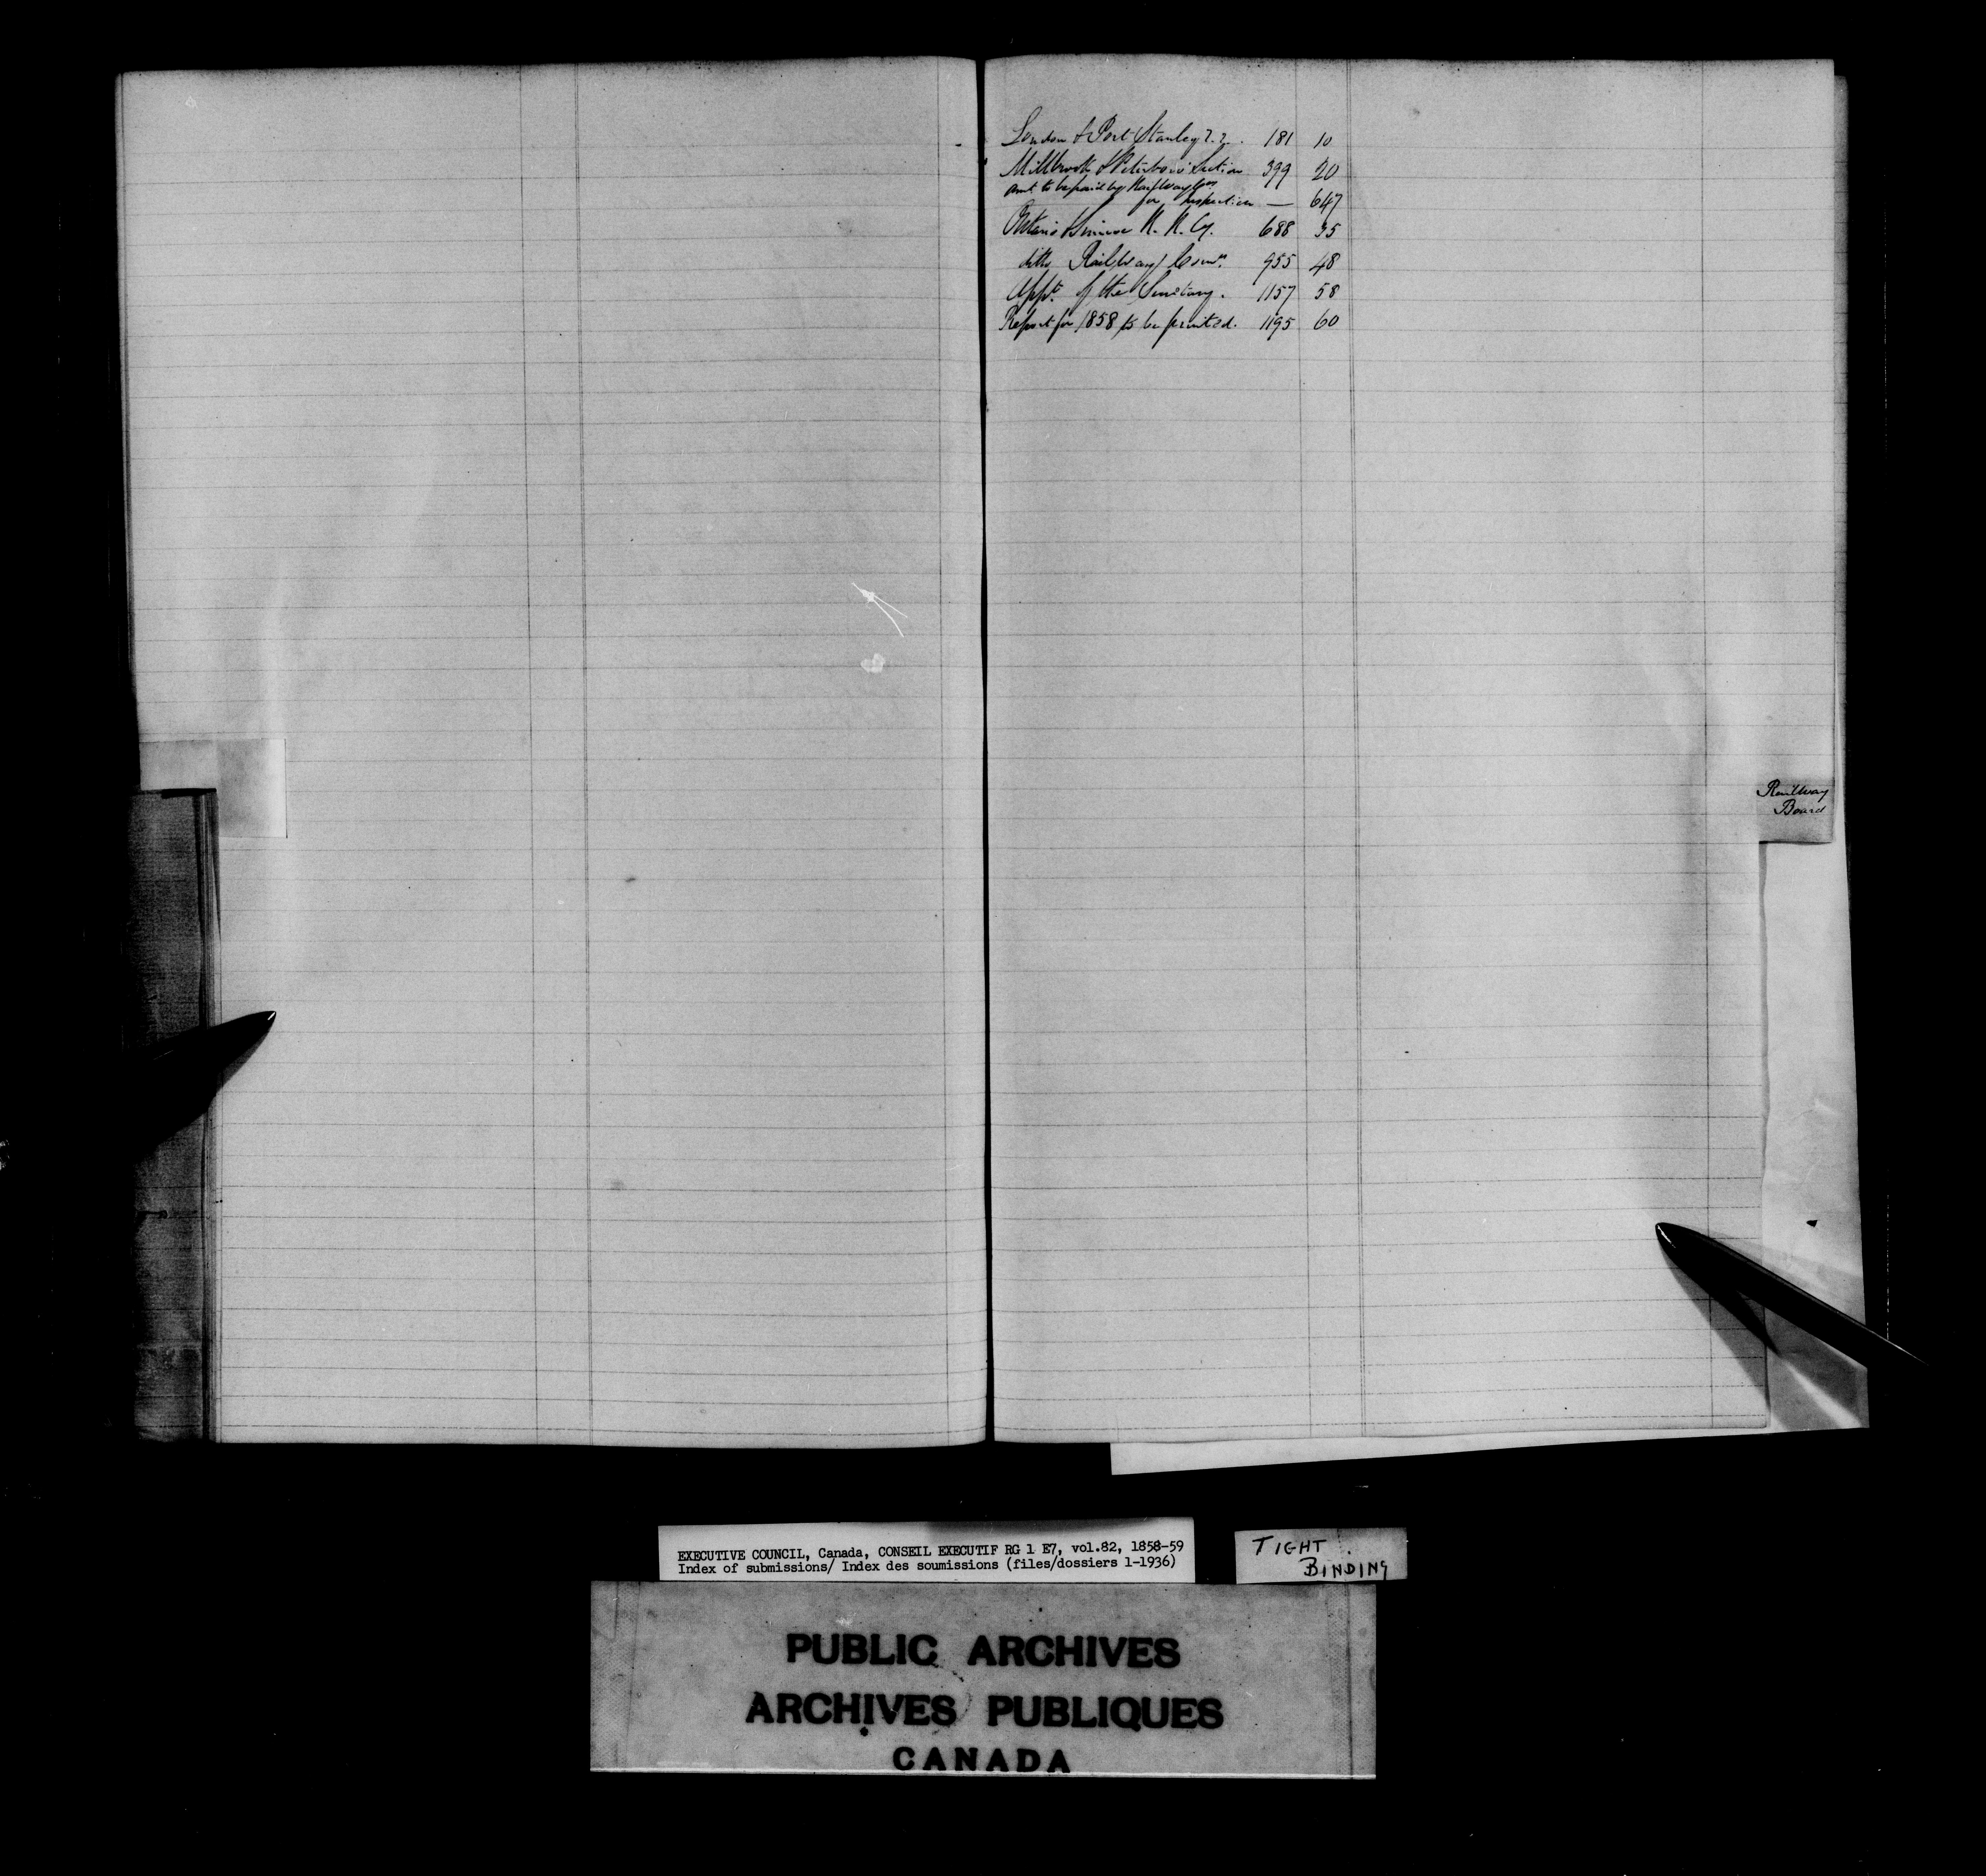 London & Port Stanley R.R. 181 10
Millbrook & Peterboro' Section 399 20
Amt. to be paid by Railway Cos
for Inspection — 647
Ontario Simcoe R. R. Cy. 688 35
ditto Railway 955 48
Appt. of the Secretary. 1157 58
Report for 1858 to be printed. 1195 60
Railway
Board
EXECUTIVE COUNCIL, Canada, CONSEIL EXECUTIF RG 1 E7, vol.82, 1858-59
Index of submissions/ Index des soumissions (files/dossiers 1-1936)
TIGHT
BINDING
PUBLIC ARCHIVES
ARCHIVES PUBLIQUES
CANADA